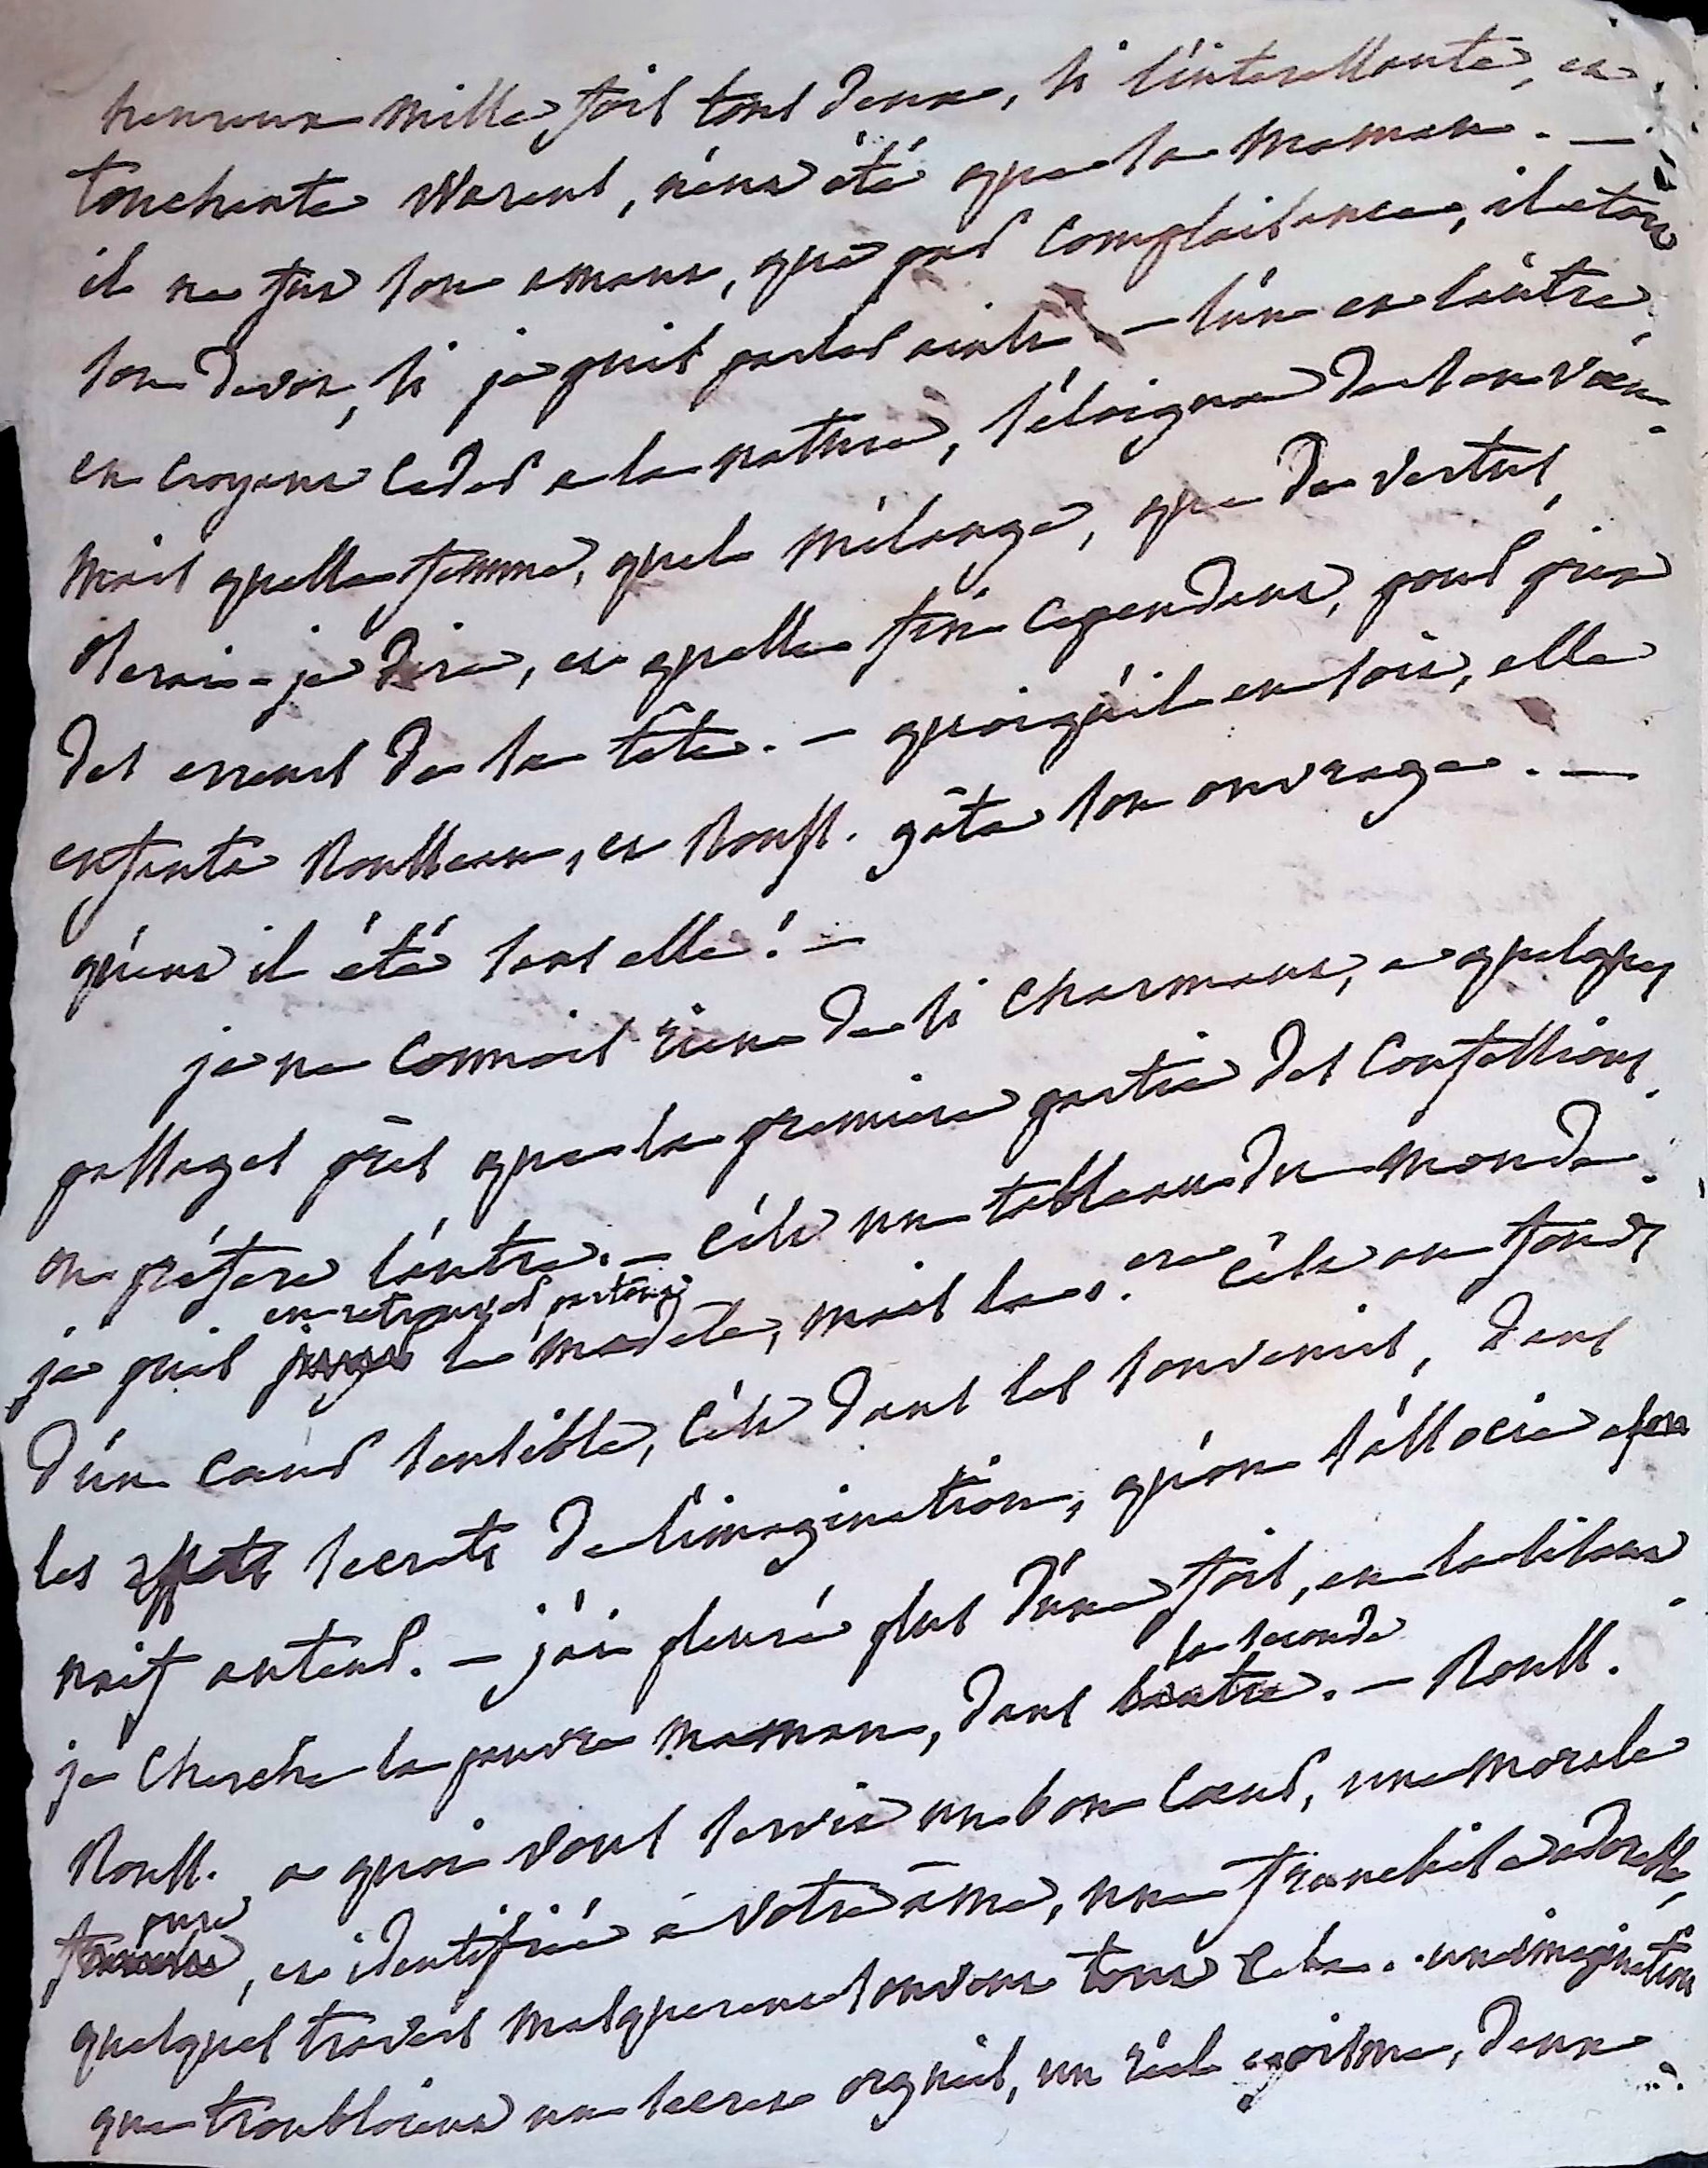 heureux mille fois tous deux, si l'interessante, et
touchante Warens, n'eut été que sa maman. —
il ne fut son amant, que par complaisance, il etoit
son devoir, si je puis parler ainsi — l'un et l'autre,
en croyant ceder a la nature, s'éloignoit de son vœu.
mais quelle femme, quel mélange, que de vertus,
oserai-je dire, et quelle fin cependant, pour prix
des erreurs de sa tête. — quoiqu'il en soit, elle
enfanta Rousseau, et Rouss. gâta son ouvrage. —
qu'eut il été sans elle! —
je ne connois rien de si charmant, a quelques
passages près que la premiere partie des Confessions,
on préfere l'autre. — c'est un tableau du monde.
je puis en retrouver partout le modele, mais la 1.ere c'est au fond
d'un cœur sensible, c'est dans les souvenirs, dans
les effets secrets de l'imagination, qu'on s'associe a son
naif auteur. — j'ai pleuré plus d'une fois, en la lisant.
je cherche la pauvre maman, dans la seconde. — Rouss.
Rouss. a quoi vous servit un bon cœur, une morale
pure, et identifiée à votre âme, une franchise adorable,
quelques travers masquerent souvent tout cela. une imagination
que troubloient un secret orgueil, un réel egoisme, deux